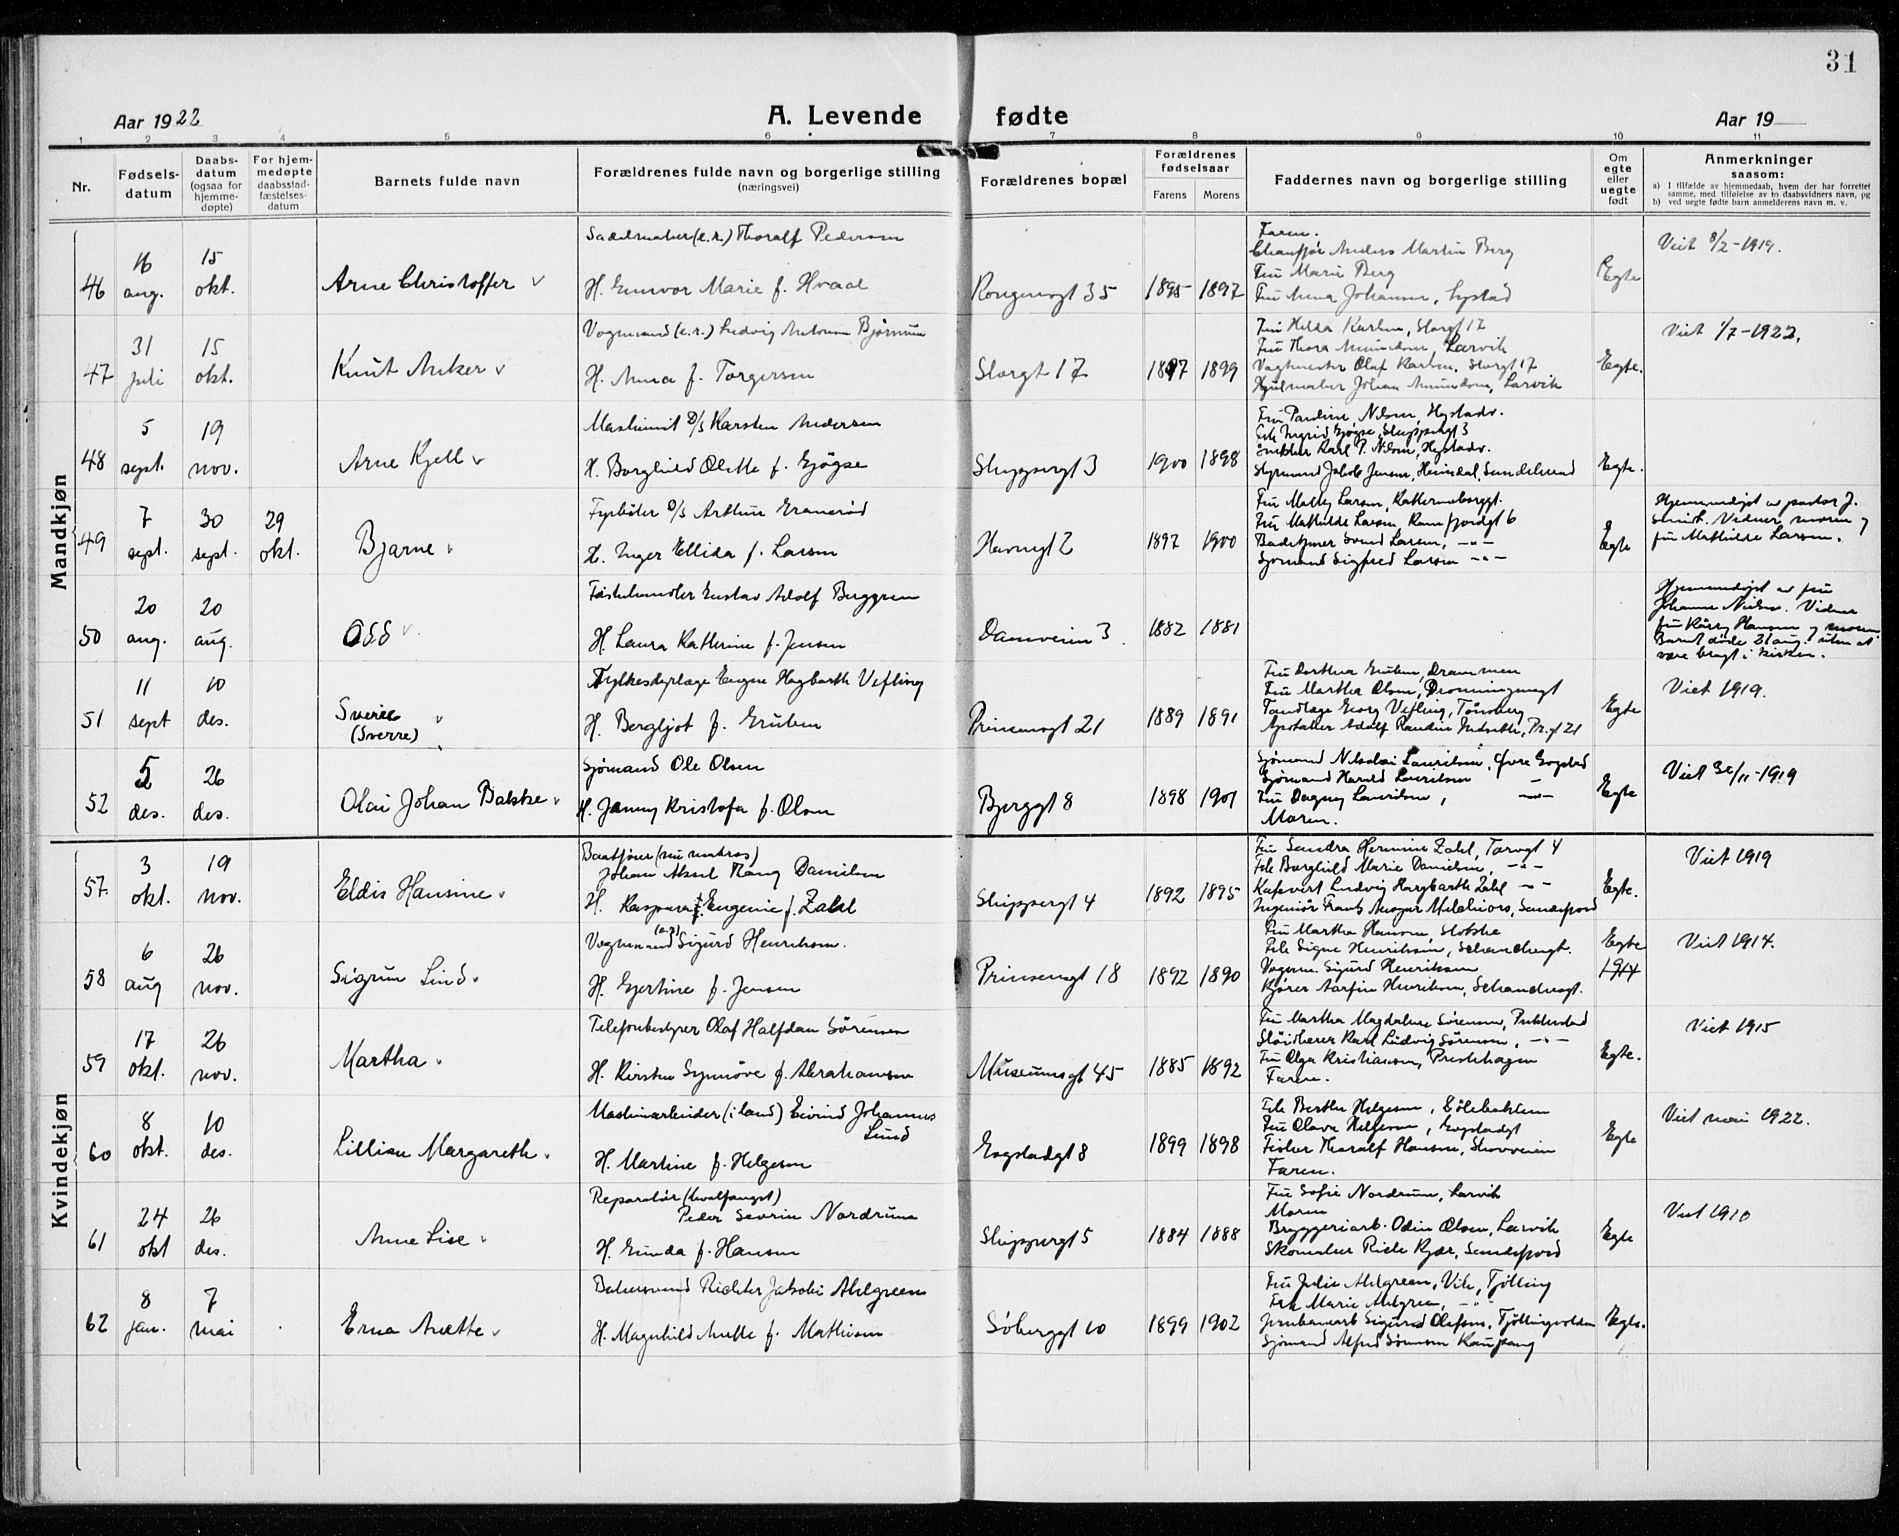 31
Aar 1922
A. Levende fødte
Aar 19
1 2 3 4 5 6 7 8 9 10 11
Nr.
Fødsels-
datum
Daabs-
datum
(ogsaa for
hjemme-
døpte)
For hjem-
medøpte
daabsstad-
fæstelses-
datum
Barnets fulde navn
Forældrenes fulde navn og borgerlige stilling
(næringsvei)
Forældrenes bopæl
Forældrenes
fødselsaar
Farens Morens
Faddernes navn og borgerlige stilling
Om
egte
eller
uegte
født
Anmerkninger
saasom:
a) I tilfælde av hjemmedaab, hvem der har forrettet
samme, med tilføielse av to daabsvidners navn, og
b) ved uegte fødte barn anmelderens navn m. v.
Mandkjøn
46
16
aug.
15
okt.
Arne Christoffer
Sadelmaker (e.r.) Thoralf Pedersen
H. Gunvor Marie f. Hvaal
Kongensgt 35
1895 1897
Faren.
Chauffør Anders Martin Berg
Fru Marie Berg
Fru Anna Johansen, Lystad
Egte
Viet 8/2-1919.
47
31
juli
15
okt.
Knut Anker
Vognmand (e.r.) Ludvig Antonsen Bjørnum
H. Anna f. Torgersen
Storgt 17
1897 1899
Fru Hilda Karlsen, Storgt 17
Fru Thora Amundsen, Larvik
Vagtmester Olaf Karlsen, Storgt 17
Hjulmaker Johan Amundsen, Larvik
Egte.
Viet 1/7-1922.
48
5
sept.
19
nov.
Arne Kjell
Maskinist D/S Karsten Andersen
H. Borghild Olette f. Gjøgse
Skippergt 3
1900 1898
Fru Pauline Nilsen, Hystadv.
Frk Ingrid Gjøgse, Skippergt 3
Snekker Karl P. Nilsen, Hystadv.
Styrmand Jakob Jensen, Heimdal, Sandeherred
Egte.
49
7
sept.
30
sept.
29
okt.
Bjarne
Fyrbøter D/S Arthur Granerød
H. Inger Ellida f. Larsen
Havnegt 2
1897 1900
Fru Molly Larsen, Rattermaborggt.
Fru Mathilde Larsen, Ramfjordgt 6
Badetjener Svend Larsen, -"-
Sjømand Sigfred Larsen -"-
Egte
Hjemmedøpt av pastor J.
Smidt. Vidner moren og
fru Mathilde Larsen.
50
20
aug.
20
aug.
Odd
Fiskehandler Gustav Adolf Berggren
H. Laura Katherine f. Jensen
Damveien 3
1882 1881
Hjemmedøpt av fru
Johanne Nielsen. Vidner
fru Kårry Hansen og moren.
Barnet døde 21 aug. uten at
være bragt i kirken.
51
11
sept
10
des.
Sverie
(Sverre)
Fylkesdyrlæge Eugne Hagbarth Vefling
H. Bergljot f. Gruben
Prinsensgt 21
1889 1891
Fru Dorthea Gruben, Drammen
Fru Martha Olsen, Dronningensgt
Tandlæge Georg Vefling, Tønsberg
Apotaker Adolf Randin Indseth, Pr.gt 21
Egte
Viet 1919.
52
5
des.
26
des.
Olai Johan Bakke
Sjømand Ole Olsen
H. Janny Kristofa f. Olsen
Bjerggt 8
1898 1901
Sjømand Nikolai Lauritsen, Øvre Gogstad
Sjømand Harald Lauritsen -
Fru Dagny Lauritsen, -"-
Moren.
Egte
Viet 30/11-1919
Kvindekjøn
57
3
okt.
19
nov.
Eldis Hansine
Baatfører (nu matros)
Johan Aksel Rang Danielsen
H. Kaspara Eugenie f. Zahl
Skippergt 4
1892 1895
Fru Sandra Hermine Zahl, Torvgt 4
Frk Borghild Marie Danielsen, -"-
Kafevert Ludvig Hagbarth Zahl -"-
Ingeniør Frants Ansgar Melchiors, Sandefjord
Egte.
Viet 1919
58
6
aug
26
nov.
Sigrun Lind
Vognmand (e.r.) Sigurd Henriksen.
H. Gjertine f. Jensen
Prinsensgt 18
1892 1890
Fru Martha Hansen, Slotske
Frk Signe Henriksen, Schanchesgt.
Vognm. Sigurd Henriksen
Kjører Aarfin Henriksen, Schanchesgt.
Egte
1914
Viet 1914.
59
17
okt.
26
nov.
Martha
Telefonbestyrer Olaf Halfdan Sørensen
H. Kirsten Synnøve f. Abrahamsen
Museumsgt 45
1885 1892
Fru Martha Magdalene Sørensen, Pukkestad
Sløidlærer Karl Ludvig Sørensen, -"-
Fru Olga Kristiansen, Prestehagen
Faren.
Egte.
Viet 1915
60
8
okt.
10
des.
Lillian Margareth
Maskinarbeider (i land) Eivind Johannes
Lund
H. Martine f. Helgesen
Gogstadgt 8
1899 1898
Frk Berthe Helgesen, Gölebakken
Fru Olava Helgesen, Gogstadgt
Fisker Thoralf Hansen, Skovveien
Faren.
Egte
Viet mai 1922.
61
24
okt
26
des.
Anne Lise
Reparatør (hvalfangst)
Peder Severin Nordrum
H. Gunda f. Hansen
Skippergt 5
1884 1888
Fru Sofie Nordrum, Larvik
Moren
Bryggeriarb. Odin Olsen, Larvik
Skomaker Riele Kjær, Sandefjord
Egte
Viet 1910
62
8
jan.
7
mai
Erna Anette
Bakersvend Richter Jakobi Ahlgreen
H. Magnhild Anette f. Mathisen
Søberggt 10
1899 1902
Fru Julie Ahlgreen, Vik, Tjølling
Frk Marie Ahlgreen, -"-
Jernbanearb Sigurd Olafsen, Tjøllingvolden
Sjømand Alfred Sørensen Kaupang
Egte.